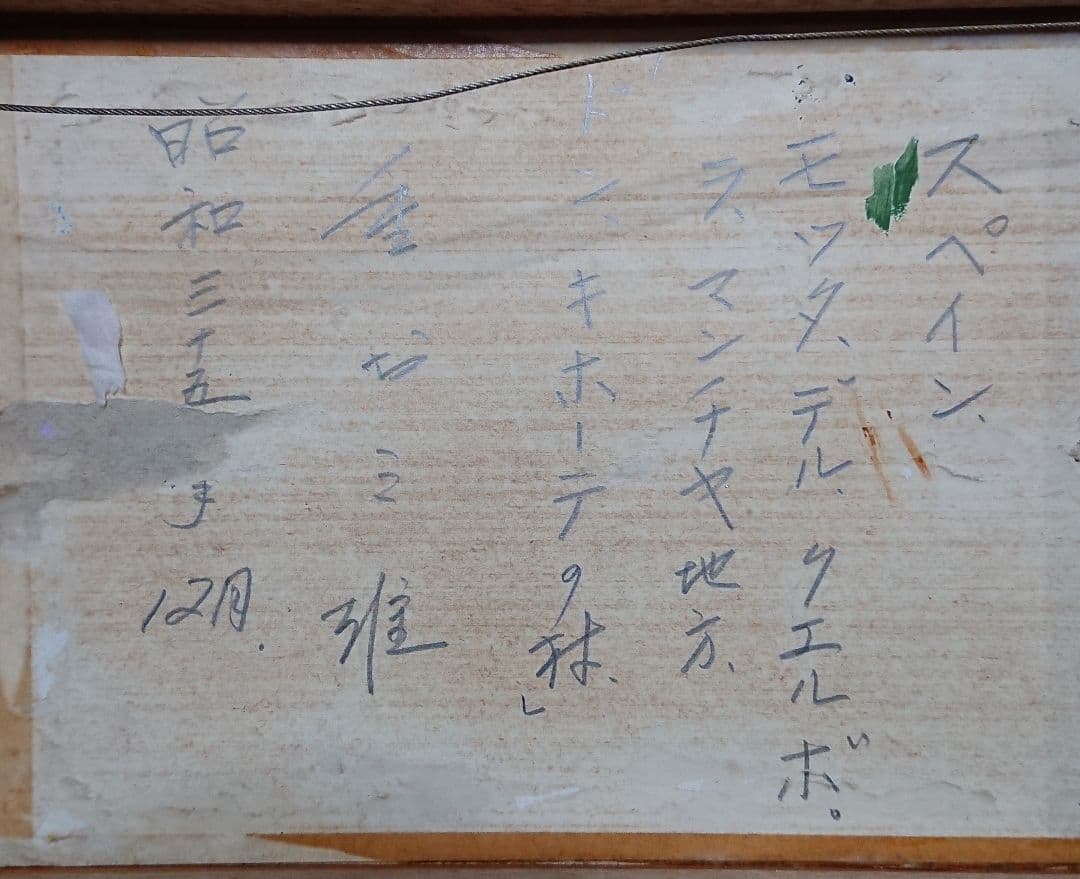 スペイン、
モツタ、デル、クエルボ。
ラ、マンチヤ地方、
ドン、キホーテの村、」
昭和三十五年 12月.